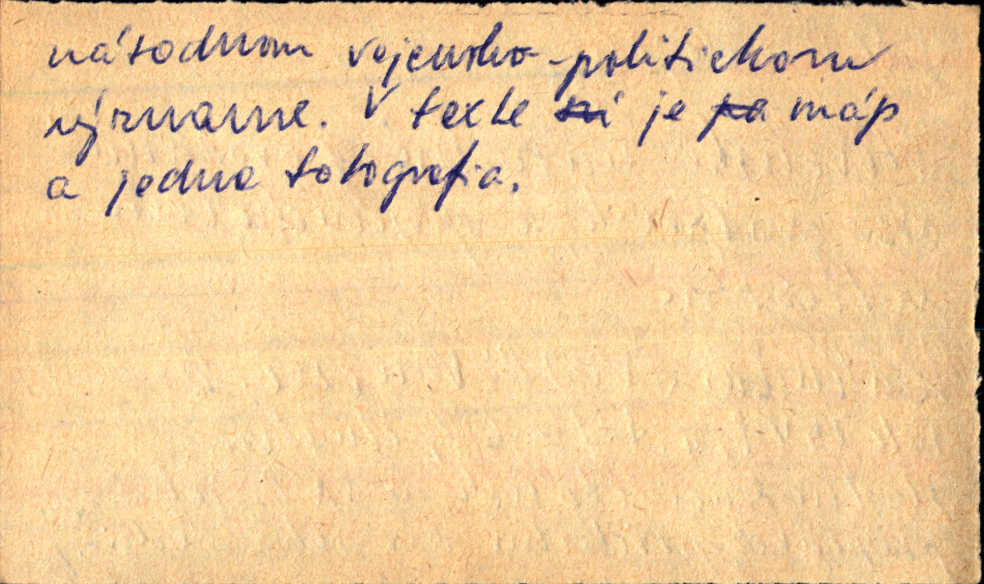 národnom vojensko-politickom
význame. V texte sú je pa máp
a jedna fotografia.